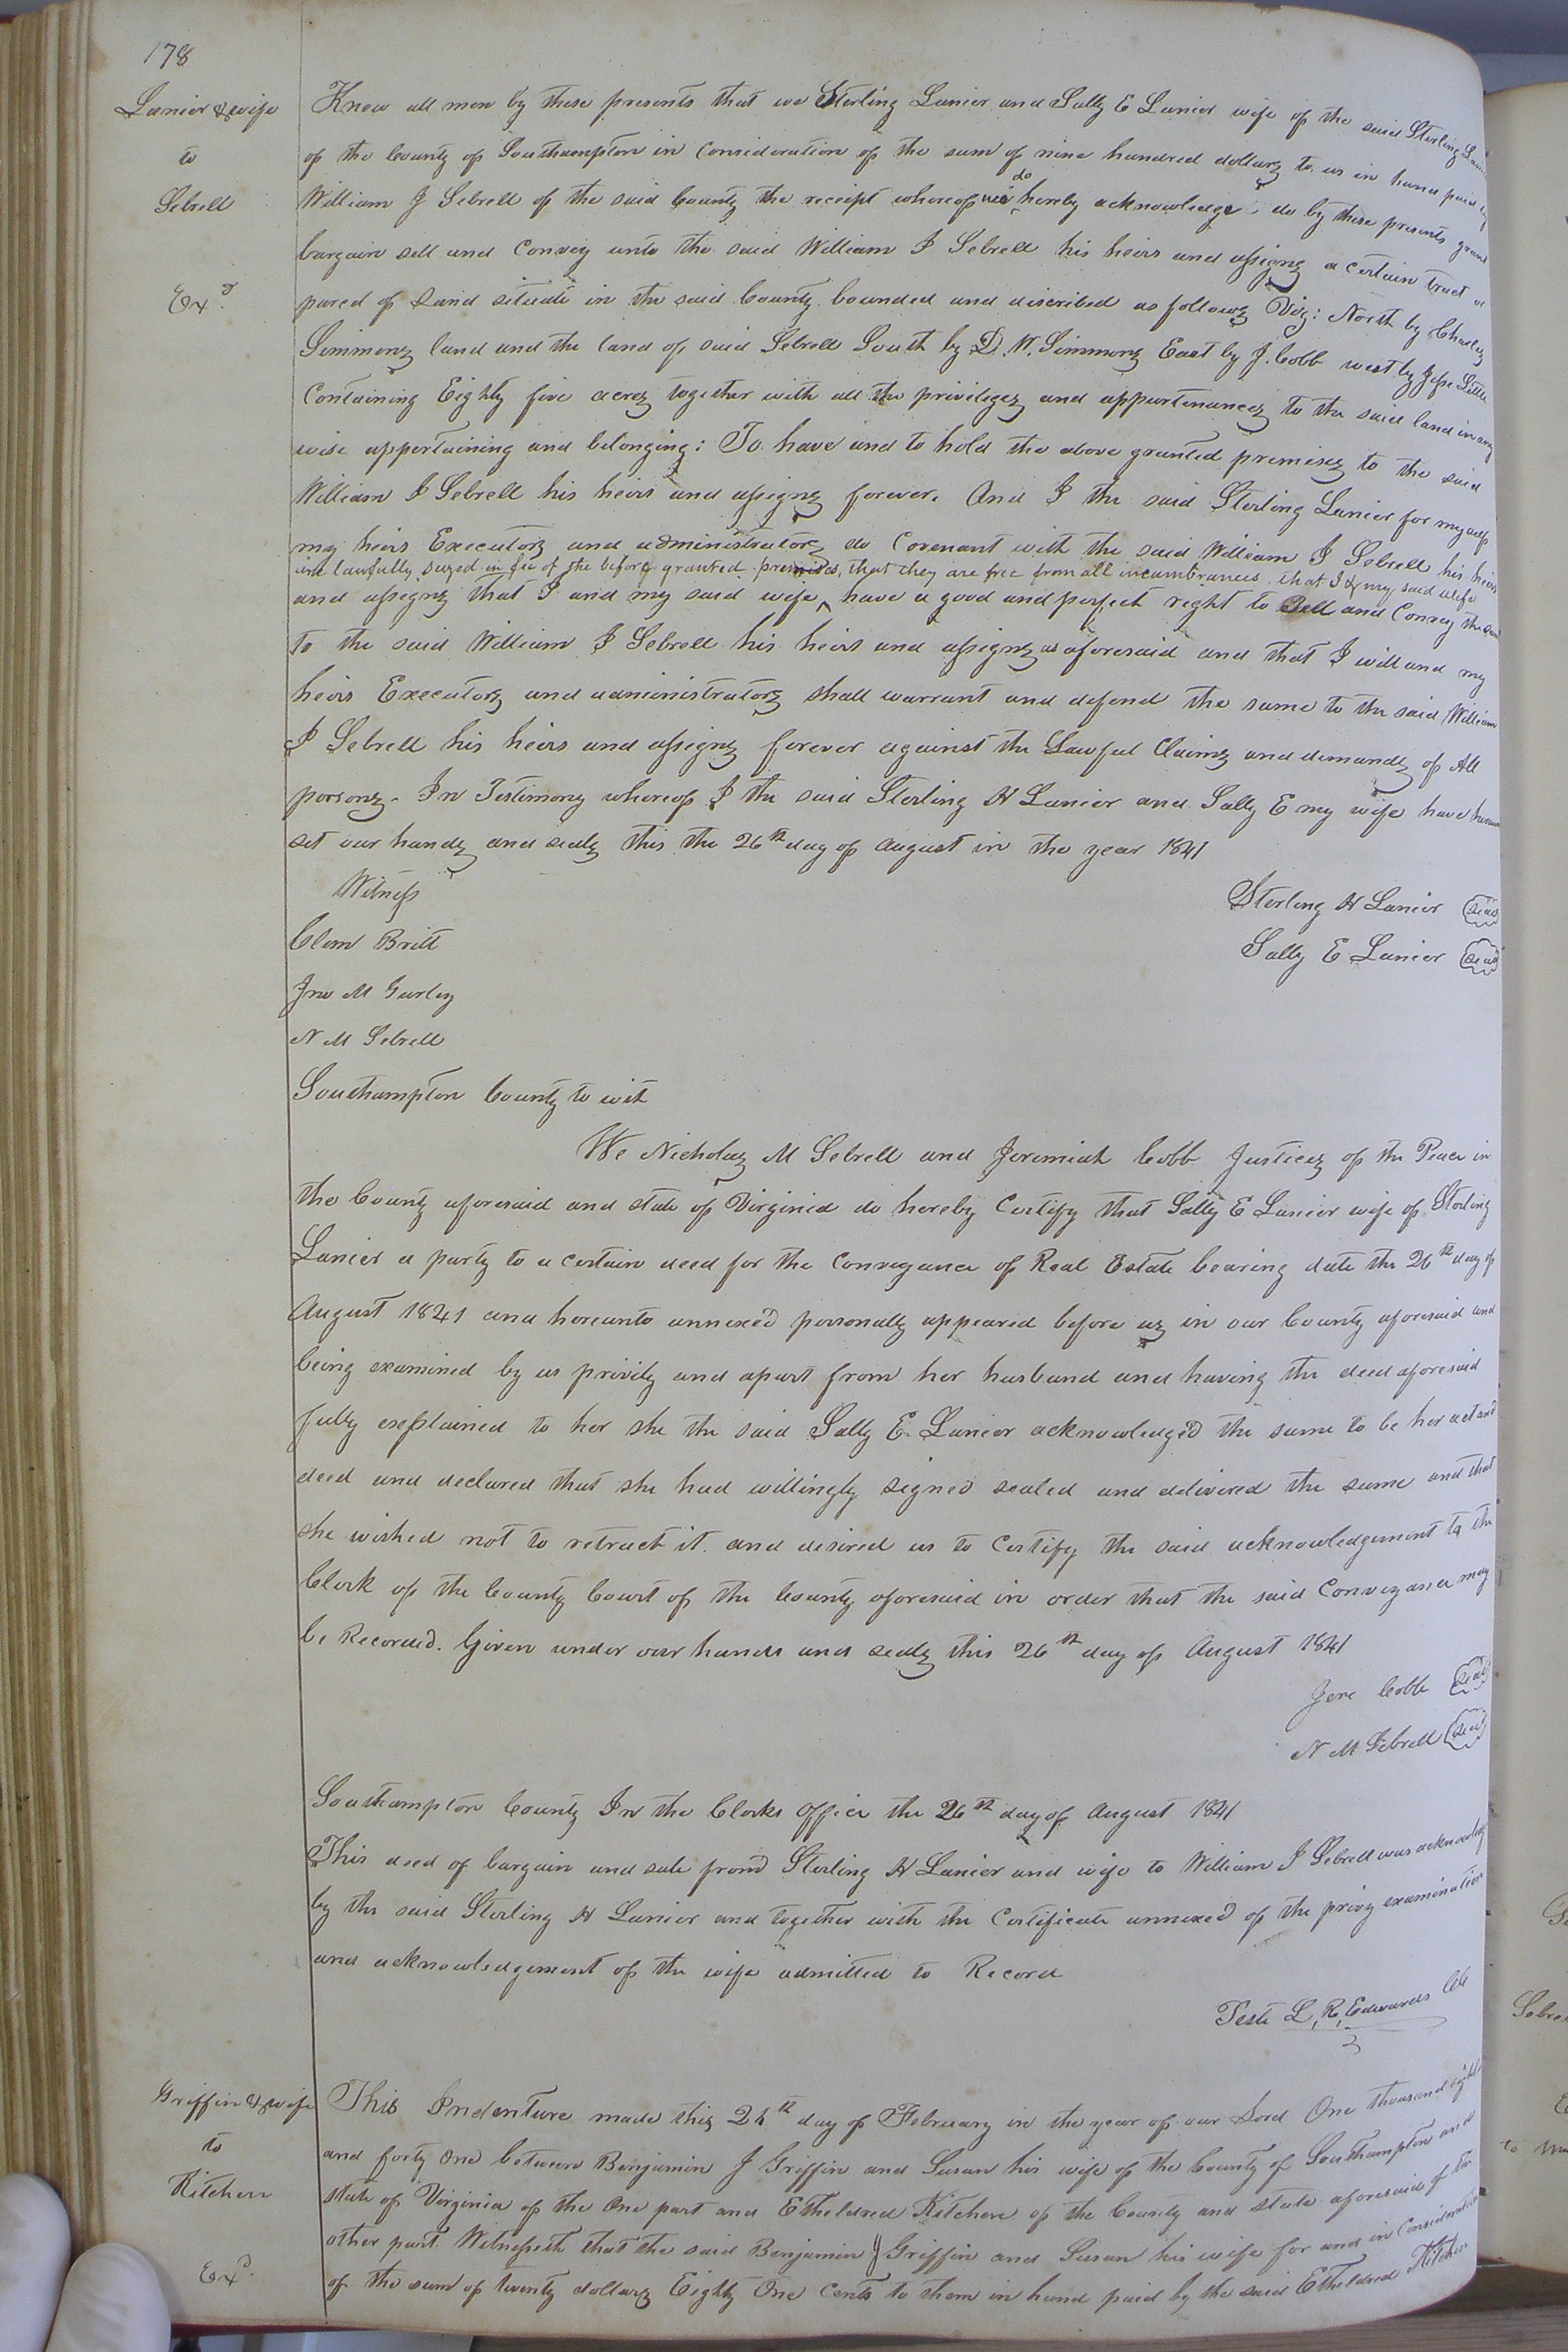 178
Lanier & wife
to
Sebrell
Exd.
Know all men by these presents that we Sterling Lanier and Sally E Lanier wife of the said Sterling
of the County of Southampton in Consideration of the sum of nine hundred dollars to us in hand paid by
William J Sebrell of the said County the receipt whereof we do hereby acknowledge do by these presents grant
bargain sell and Convey unto the said William J Sebrell his heirs and assigns a certain tract or
parcel of Land situate in the said County bounded and discribed as follows Viz: North by Charles
Simmons land and the land of said Sebrell South by D. W. Simmons East by J. Cobb west by Jesse Little
Containing Eighty five acres together with all the privileges and appurtenances to the said land in any
wise appertaining and belonging: To have and to hold the above granted premises to the said
William J Sebrell his heirs and assigns forever. And I the said Sterling Lanier for myself
my heirs Executors and administrators do Covenant with the said William J Sebrell his heirs
are lawfully seized in fee of the before granted premises, that they are free from all incumbrances that I & my said wife
and assigns that I and my said wife ^ have a good and perfect right to Sell and Convey the same
to the said William J Sebrell his heirs and assigns as aforesaid and that I will and my
heirs Executors and administrators shall warrant and defend the same to the said William
J Sebrell his heirs and assigns forever against the Lawful Claims and demands of All
persons. In Testimony whereof I the said Sterling H Lanier and Sally E my wife have
set our hands and seals this the 26th day of August in the year 1841
Witness
Sterling H Lanier Seal
Clem Britt
Sally E Lanier Seal
Jno M Gurley
N M Sebrell
Southampton County to wit
We Nicholas M Sebrell and Jeremiah Cobb Justices of the Peace in
the County aforesaid and state of Virginia do hereby Certify that Sally E Lanier wife of Sterling
Lanier a party to a certain deed for the Conveyance of Real Estate bearing date the 26th day of
August 1841 and hereunto annexed personally appeared before us in our County aforesaid and
being examined by us privily and apart from her husband and having the deed aforesaid
fully explained to her she the said Sally E. Lanier acknowledged the same to be her act and
deed and declared that she had willingly signed sealed and delivered the same and that
she wished not to retract it and desired us to Certify the said acknowledgement to the
Clerk of the County Court of the County aforesaid in order that the said Conveyance may
be Recorded. Given under our hands and seals this 26th day of August 1841
Jere Cobb Seal
N M Sebrell Seal
Southampton County In the Clerks Office the 26th day of August 1841
This deed of bargain and sale from Sterling H Lanier and wife to William J Sebrell was
by the said Sterling H Lanier and together with the Certificate annexed of the privy examination
and acknowledgement of the wife admitted to Record
Teste L, R, Edwards Clk
Griffin & wife
to
Kitchen
Exd.
This Indenture made this day of February in the year of our Lord One thousand eight
and forty One between Benjamin J Griffin and Susan his wife of the County of Southampton and
state of Virginia of the One part and Etheldred Kitchen of the County and state aforesaid of the
other part Witnesseth that the said Benjamin J Griffin and Susan his wife for and in Consideration
of the sum of twenty dollars Eighty One Cents to them in hand paid by the said Etheldred Kitchen